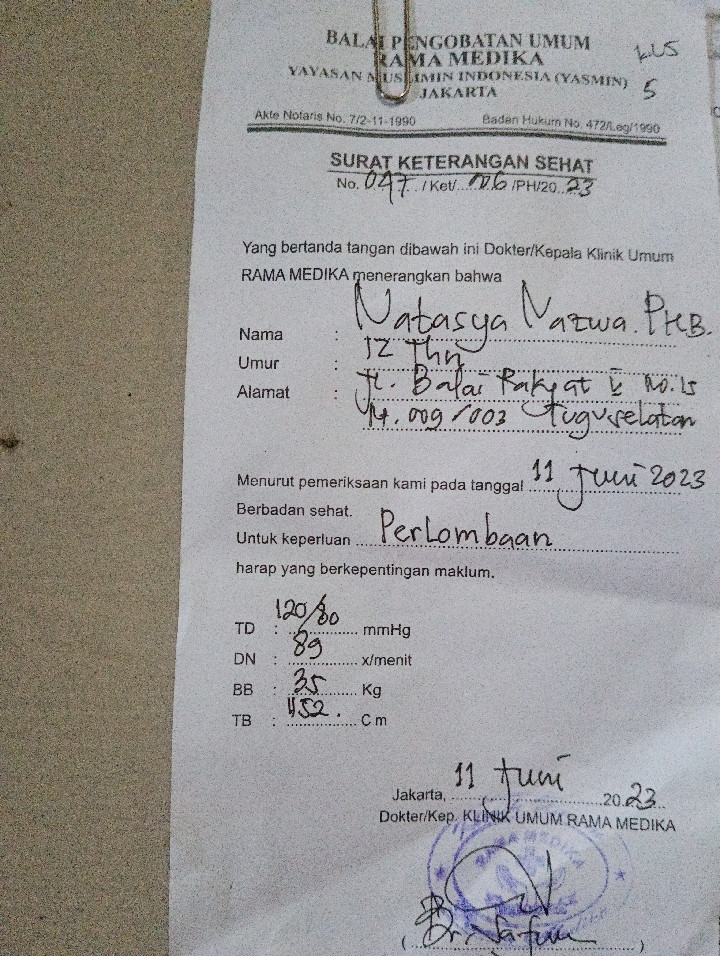 BALAI PENGOBATAN UMUM
RAMA MEDIKA
YAYASAN MUSLIMIN INDONESIA (YASMIN)
JAKARTA
5
Akte Notaris No. 7/2-11-1990 Badan Hukum No. 472/Leg/1990
SURAT KETERANGAN SEHAT
No. 047 / Ket/ /PH/20 23
Yang bertanda tangan dibawah ini Dokter/Kepala Klinik Umum
RAMA MEDIKA menerangkan bahwa
Nama : Natasya Nazwa. P.H.B.
Umur : 12 Thn
Alamat : Jl. Balai Rakyat No. 15
Rt. 009/003 Tugu selatan
Menurut pemeriksaan kami pada tanggal 11 Juni 2023
Berbadan sehat.
Untuk keperluan Perlombaan
harap yang berkepentingan maklum.
TD : 120/80 mmHg
DN : 89 x/menit
BB : 35 Kg
TB : 152. Cm
Jakarta, 11 Juni 20 23
Dokter/Kep. KLINIK UMUM RAMA MEDIKA
RAMA MEDIKA
( Dr. )